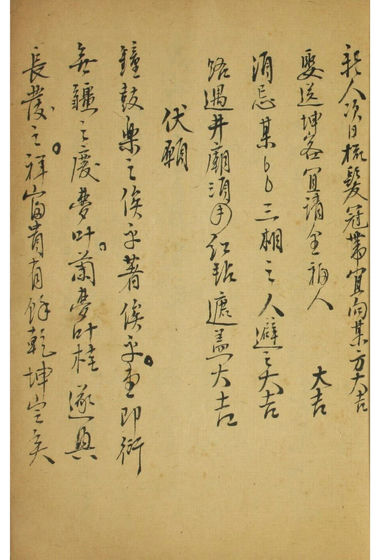 新人次日梳髮冠帶宜向某方大吉
娶送坤客宜請全福人　大吉
消忌某々三相之人避之大吉
路遇井廟消用紅毡遮盖大吉
伏願
鐘鼓樂之俟乎著俟乎堂即衍
無疆之慶夢叶蘭夢叶桂遂興
長發之祥富貴有餘乾坤定矣